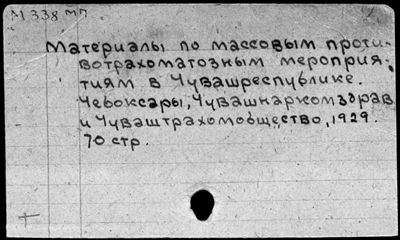 М 338 МП
Материалы по массовым проти-
вотрахоматозным мероприя-
тиям в Чувашреспублике.
Чебоксары, Чувашнаркомздрав
и Чуваштрахомобщество, 1929.
70 стр.